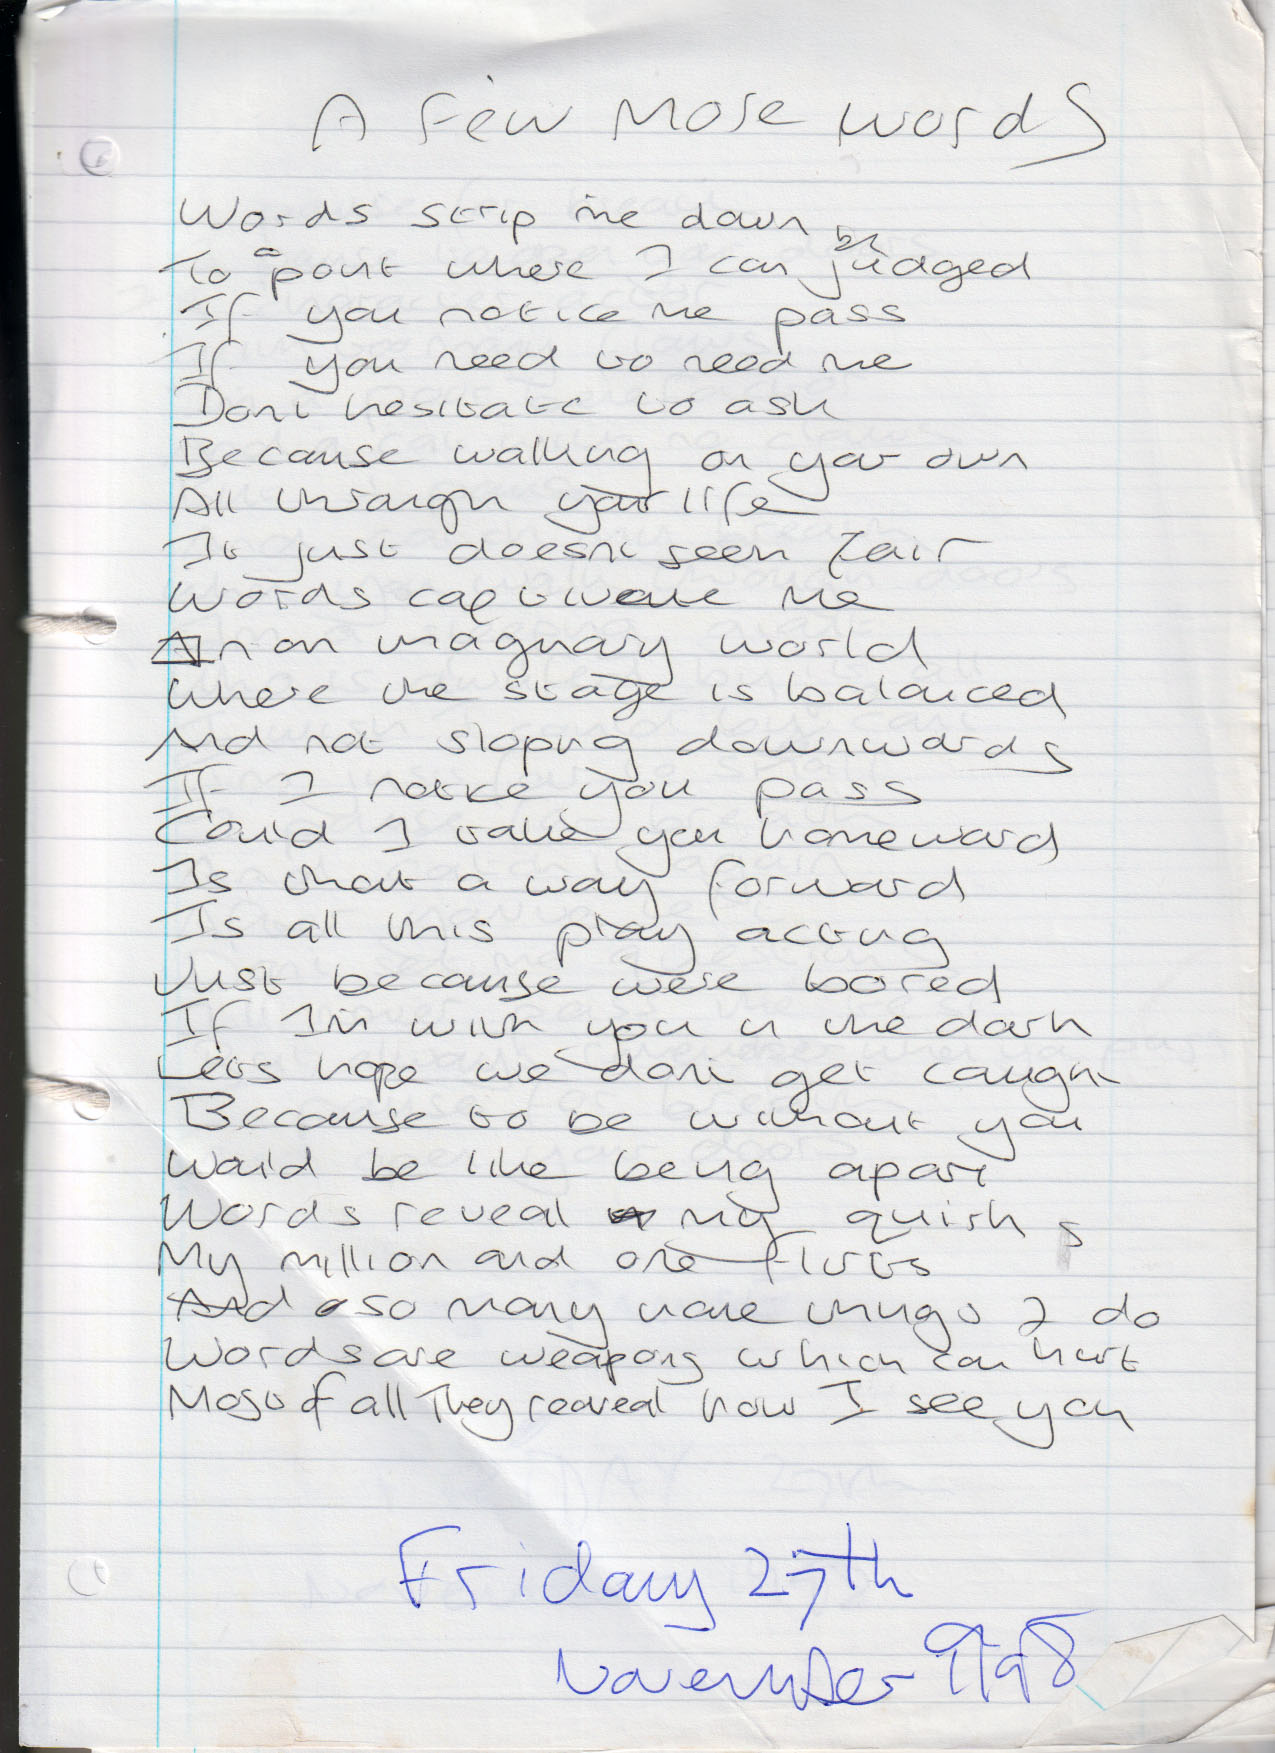 A Few More Words
Words strip me down
To a point where I can be judged
If you notice me pass
If you need to read me
Dont hesitate to ask
Because walking on your own
All through your life
It just doesnt seem fair
Words captivate me
In an imaginary world
Where the stage is balanced
And not sloping downwards
If I notice you pass
Could I take you homeward
Is that a way forward
Is all this play acting
Just because were bored
If Im with you in the dark
Lets hope we dont get caught
Because to be without you
Would be like being apart
Words reveal my quirks
My million and one flirts
And so many more things I do
Words are weapons which can hurt
Most of all They reveal how I see you
Friday 27th
November 1998